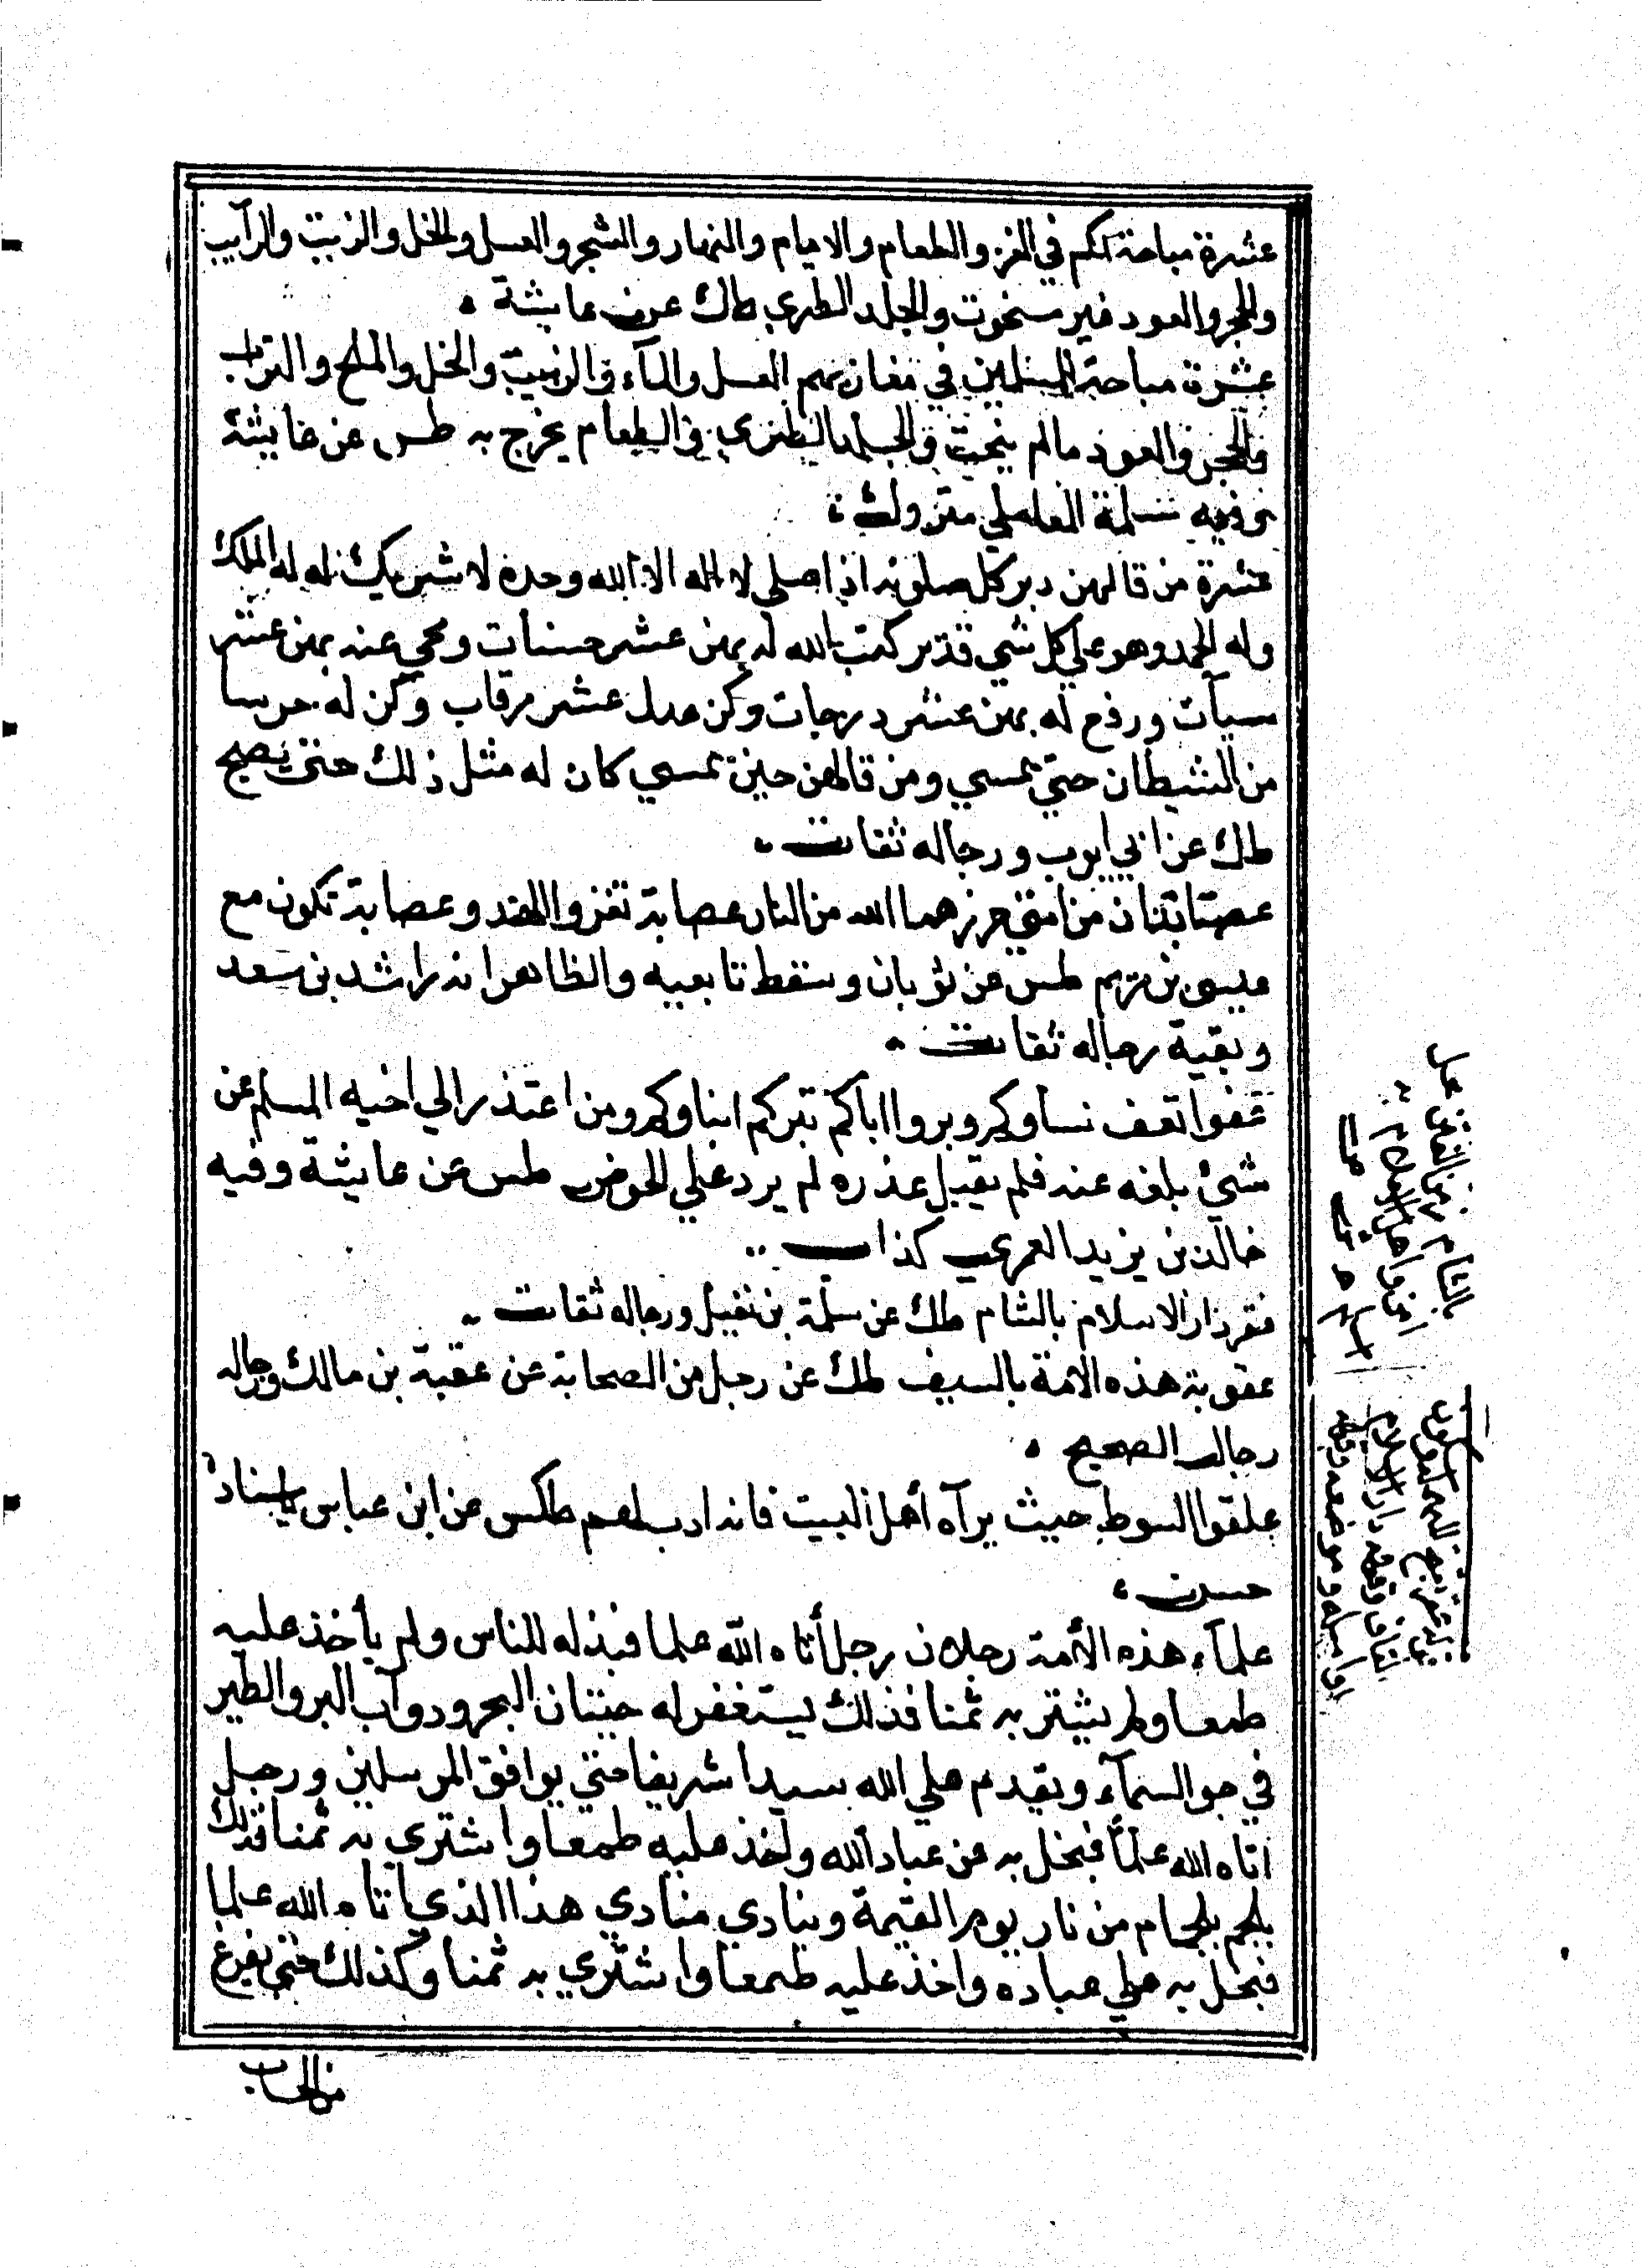 عشرة مباحة لكم في الغزو الطعام والادام والثمار والشجر والعسل والخل والزيت والزبيب
والحجر والعود غير منحوت والجلد الطري طك عن عايشة
عشرة مباحة للمسلمين في مغازيهم العسل والمآء والزبيب والخل والملح والتراب
والحجر والعود مالم ينحت والجلد الطري والطعام يخرج به طس عن عايشة
وفيه سلمة العاملي متروك
عشرة من قالهن دبر كل صلوته اذا صلي لا اله الا الله وحده لا شريك له له الملك
وله الحمد وهو علي كل شي قدير كتب الله له بهن عشر حسنات ومحي عنه بهن عشر
سيآت ورفع له بهن عشر درجات وكن عدل عشر رقاب وكن له حرسا
من الشيطان حتي يمسي ومن قالهن حين يمسي كان له مثل ذلك حتي يصبح
طك عن ابي ايوب ورجاله ثقات
عصابتان من امتي حرزهما الله من النار عصابة تغزوا الهند وعصابة تكون مع
عيسي بن مريم طس عن ثوبان وسقط تابعيه والظاهر انه راشد بن سعد
وبقية رجاله ثقات
عفوا تعف نساوكم وبروا اباكم تبركم ابناوكم ومن اعتذر الي اخيه المسلم عن
شئ بلغه عنه فلم يقبل عذره لم يرد علي الحوض طس عن عايشة وفيه
خالد بن يزيد العمري كذاب
عقر دار الاسلام بالشام طك عن سلمة بن نفيل ورجاله ثقات
عقوبة هذه الامة بالسيف طك عن رجل من الصحابة عن عقبة بن مالك ورجاله
رجال الصحيح
علقوا السوط حيث يرآه أهل البيت فانه ادب لهم طكس عن ابن عباس باسناد
حسن
علمآء هذه الأمة رجلان رجل أتاه الله علما فبذله للناس ولم يأخذ عليه
طمعا ولم يشتر به ثمنا فذلك يستغفر له حيتان البحر ودوآب البر والطير
في جو السمآء ويقدم علي الله سيدا شريفا حتي يوافق المرسلين ورجل
اتاه الله علمآ فبخل به عن عباد الله واخذ عليه طمعا واشتري به ثمنا فذلك
يلجم بلجام من نار يوم القيمة وينادي منادي هذا الذي اتاه الله علما
فبخل به علي عباده واخذ عليه طمعا واشتري به ثمنا وكذلك حتي يفرغ
من الحساب